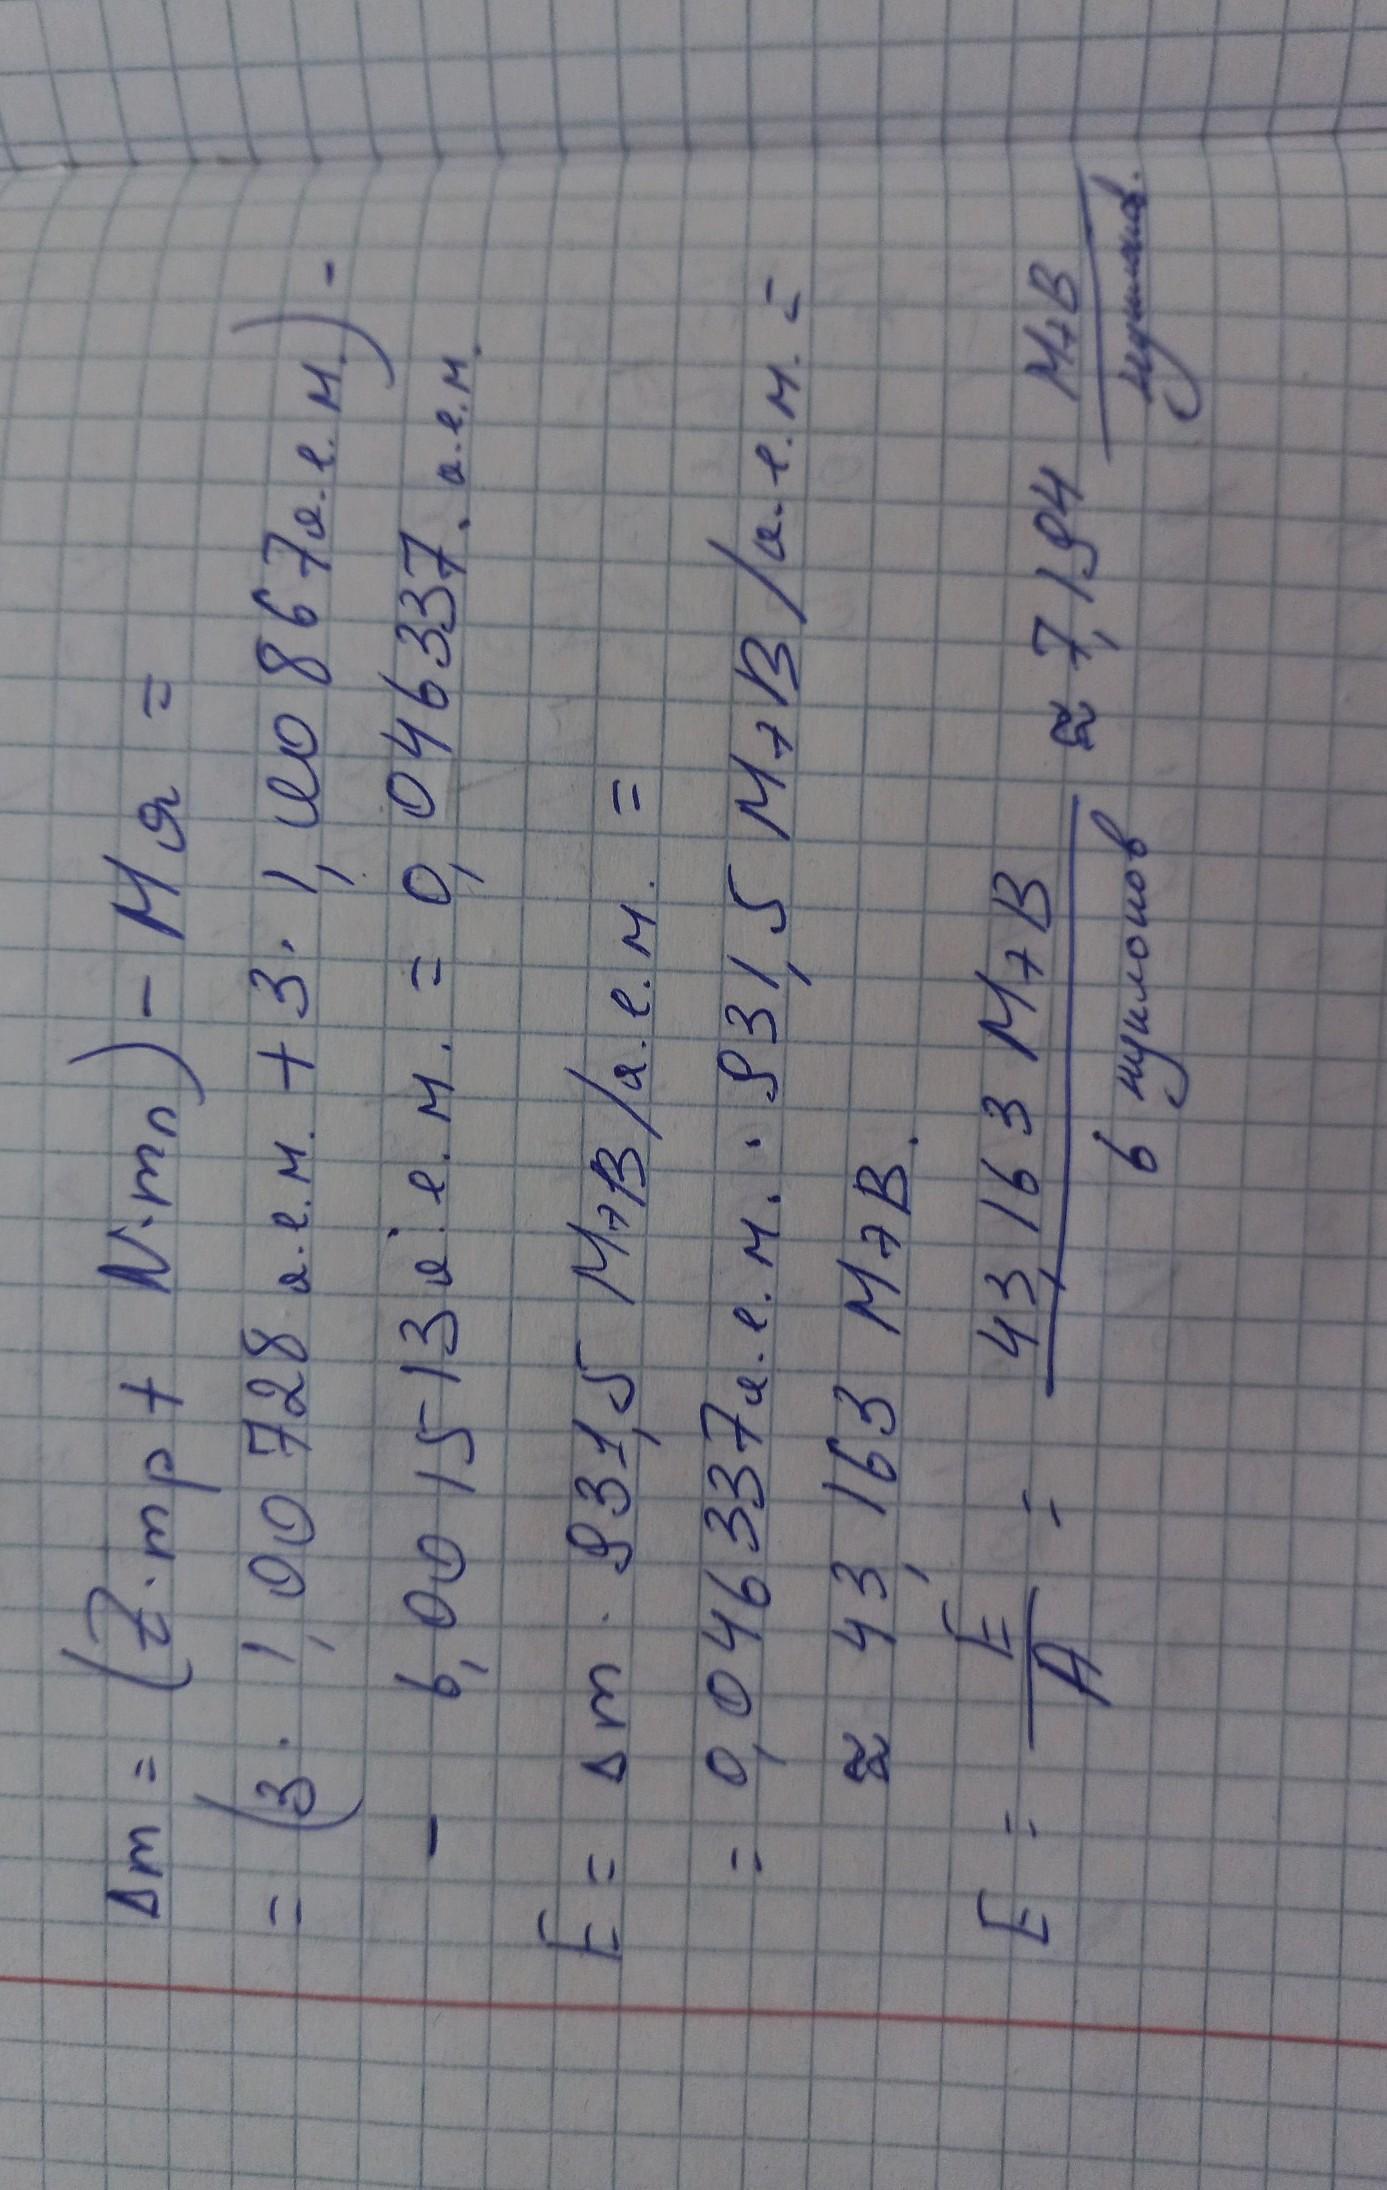 Δm = (Z·mp + N·mn) - Mя =
= (3· 1,00728 а.е.м. + 3· 1,00867а.е.м.) -
- 6,001513а.е.м. = 0,046337. а.е.м.
E = Δm · 931,5 МэВ/а.е.м. =
= 0,046337а.е.м. · 931,5 МэВ/а.е.м. =
≈ 43,163 МэВ.
E = E/A = 43,163 МэВ/6 нуклонов ≈ 7,194 МэВ/нуклонов.